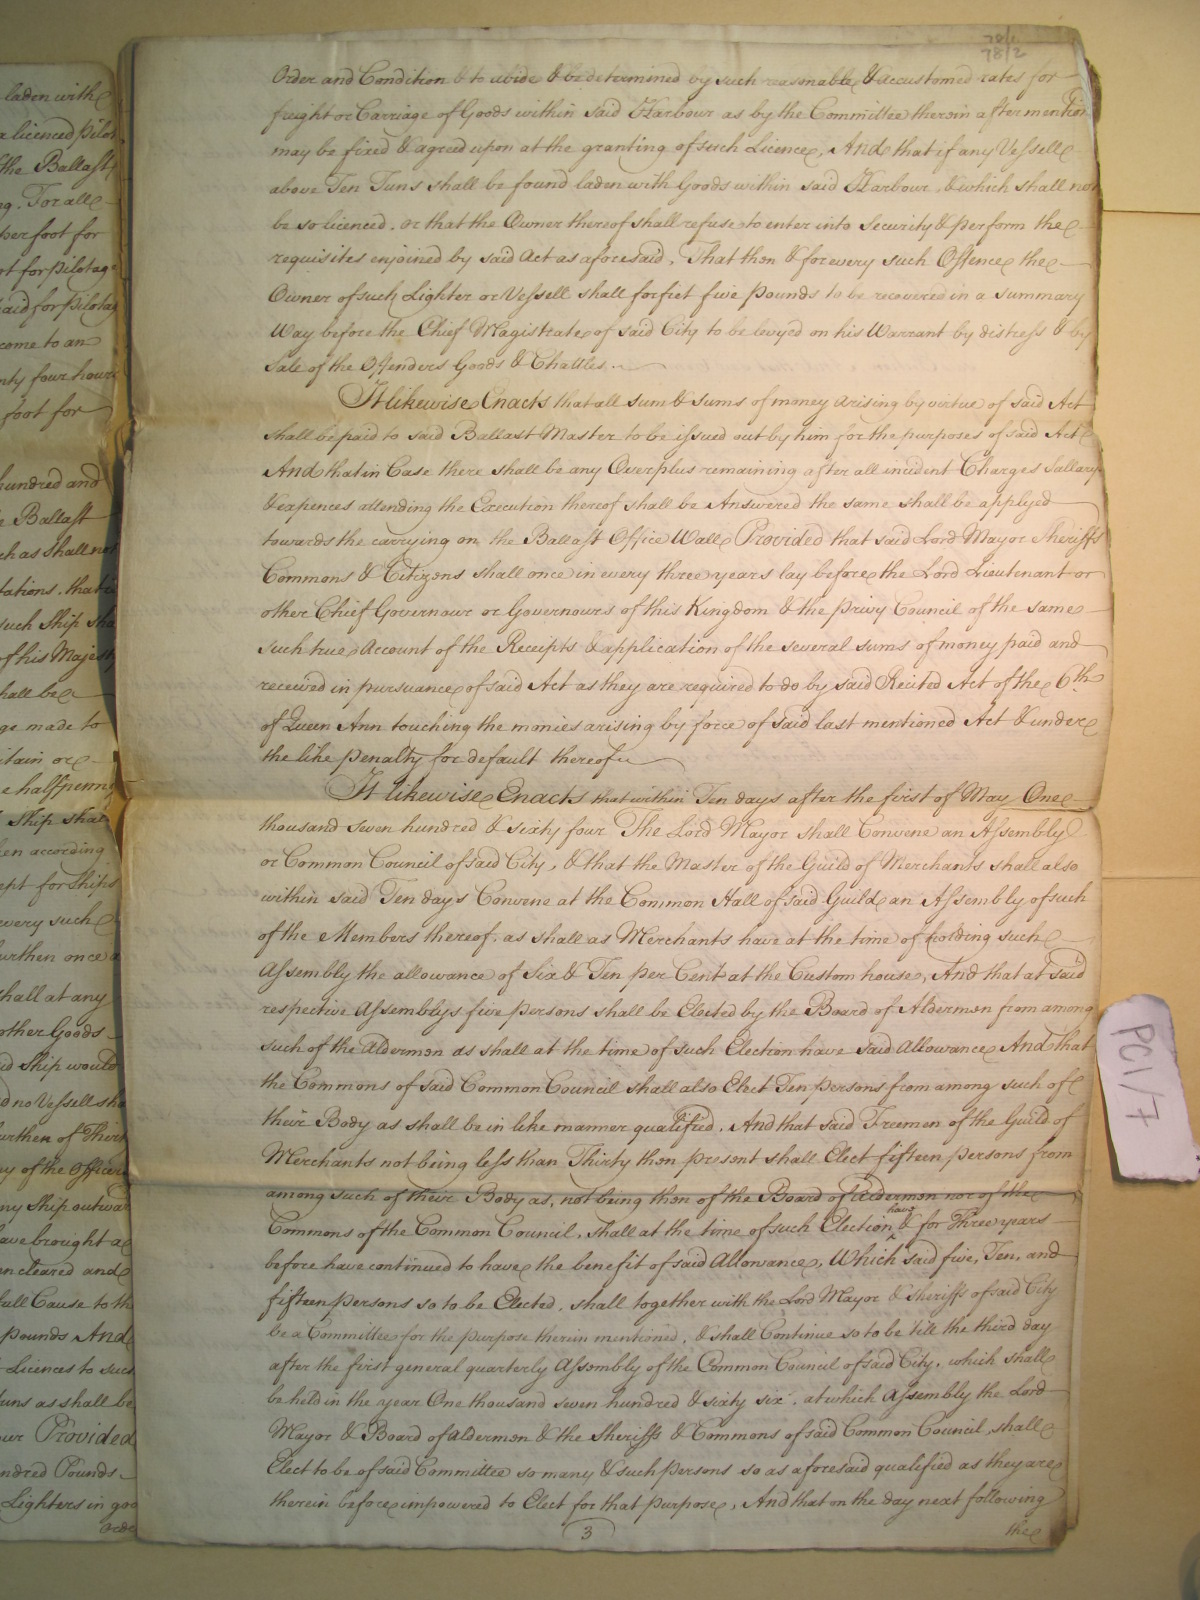 laden with
a licenced pilot
the Ballast
ng. For all
per foot for
ot for pilotage
paid for pilotag
come to an
nty four hours
foot for
hundred and
e Ballast
ch as shall not
tations, that
such Ship sha
of his Majest
hall be
ge made to
itain or
e halfpenny
Ship shal
en according
ept for Ships
every such
urthen once a
shall at any
other Goods
id Ship would
d no Vessell sha
urthen of Thirt
y of the officer
ny Ship outwar
ave brought a
n cleared and
full Cause to th
pounds And
Licences to such
Tuns as shall be
Provided
ndred Pounds
Lighters in goo
orde
78/2
Order and Condition & to abide & be determined by such reasonable & accustomed rates for
frieght or Carriage of Goods within said Harbour as by the Committee therein after mention
may be fixed & agreed upon at the granting of such Licence, And that if any Vessell
above Ten Tuns shall be found laden with Goods within said Harbour, & which shall not
be so licenced, or that the Owner thereof shall refuse to enter into Security & perform the
requisites enjoined by said Act as aforesaid, That then & for every such Offence the
Owner of such Lighter or Vessell shall forfiet five pounds to be recovered in a summary
Way before the Chief Magistrate of said City to be levyed on his Warrant by distress & by
Sale of the Offenders Goods & Chattles.
It likewise Enacts that all sum & sums of money arising by virtue of said Act
shall be paid to said Ballast Master to be issued out by him for the purposes of said Act
And that in Case there shall be any Overplus remaining after all incident Charges Sallary
& expences attending the Execution thereof shall be Answered the same shall be applyed
towards the carrying on the Ballast Office Wall Provided that said Lord Mayor Sheriffs
Commons & Citizens shall once in every three years lay before the Lord Lieutenant or
other Chief Governour or Governours of this Kingdom & the privy Council of the same
such true Account of the Receipts & application of the several sums of money paid and
received in pursuance of said Act as they are required to do by said Recited Act of the 6th
of Queen Ann touching the monies arising by force of said last mentioned Act & under
the like penalty for default thereof
It likewise Enacts that within Ten days after the first of May One
thousand seven hundred & sixty four The Lord Mayor shall Convene an Assembly
or Common Council of said City, & that the Master of the Guild of Merchants shall also
within said Ten days Convene at the Common Hall of said Guild an Assembly of such
of the Members thereof, as shall as Merchants have at the time of holding such
Assembly the allowance of Six & Ten per Cent at the Custom house, And that at said
respective Assemblys five persons shall be Elected by the Board of Aldermen from among
such of the Aldermen as shall at the time of such Election have said Allowance And that
the Commons of said Common Council shall also Elect Ten persons from among such of
their Body as shall be in like manner qualified, And that said Freemen of the Guild of
Merchants not being less than Thirty then present shall Elect fifteen persons from
among such of their Body as, not being then of the Board of Aldermen nor of the
Commons of the Common Council, shall at the time of such Election have & for Three years
before have continued to have the benefit of said Allowance, Which said five, Ten, and
fifteen persons so to be Elected, shall together with the Lord Mayor & Sheriffs of said City
be a Committee for the purpose therein mentioned, & shall Continue so to be till the third day
after the first general quarterly Assembly of the Common Council of said City, which shall
be held in the year One thousand seven hundred & sixty six, at which Assembly the Lord
Mayor & Board of Aldermen & the Sheriffs & Commons of said Common Council, shall
Elect to be of said Committee so many & such persons so as aforesaid qualified as they are
therein before impowered to Elect for that purpose, And that on the day next following
3
the
PC1/7